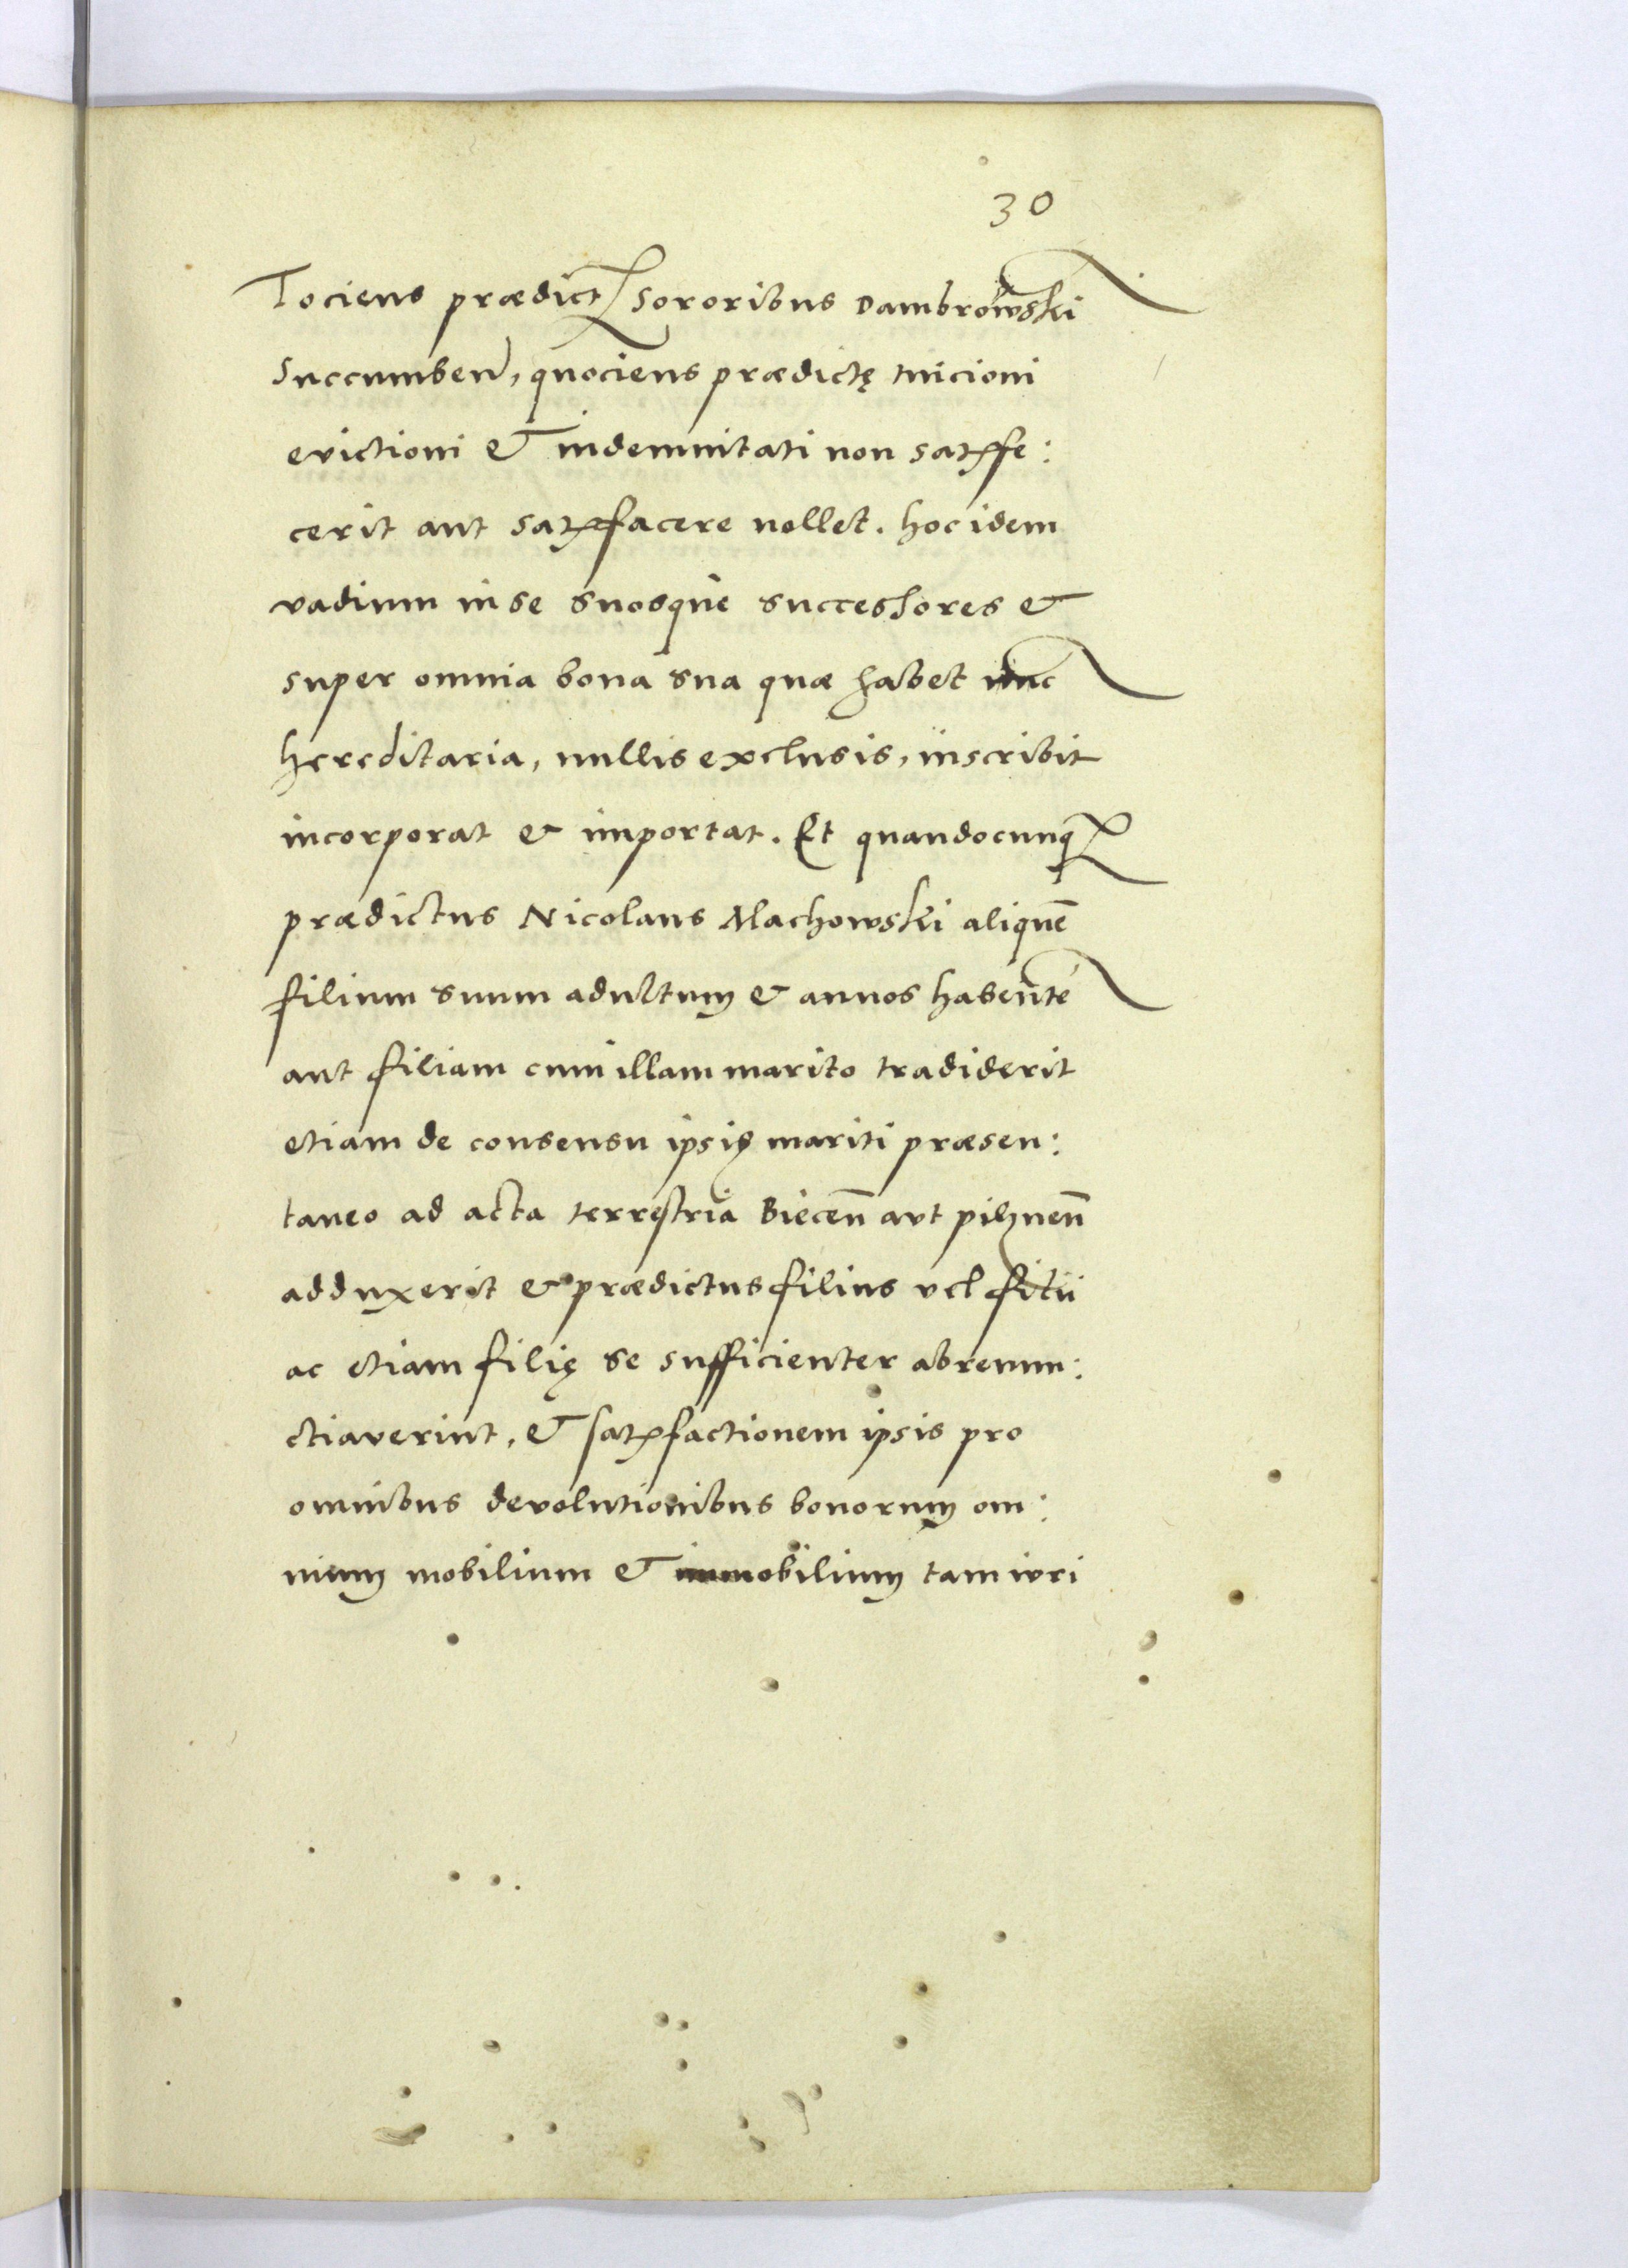 30
Tociens prædict sororibus Dambrowski
Succumben, quociens prædictę tuicioni
evictioni & indemnitati non satisfe:
cerit aut satisfacere nollet. hoc idem
vadium in se suosque successores &
super omnia bona sua quæ habet nunc
hereditaria, nullis exclusis, inscribit
incorporat & importat. Et quandocunq
prædictus Nicolaus Machowski aliquē
filium suum adultum & annos habentē
aut filiam cum illam marito tradiderit
etiam de consensu ipsiꝰ mariti præsen:
taneo ad acta terrestria Biecen̄ aut pilznen̄
adduxerit & prædictus filius vel filii
ac etiam filię se sufficienter abrenun:
ctiaverint, & satisfactionem ipsis pro
omnibus devolutionibus bonorum om:
nium mobilium & immobilium tam iuri